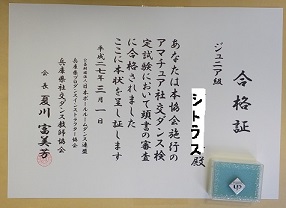 合格証
ジュニア級
シトラス殿
あなたは本協会施行の
アマチュア社交ダンス検
定試験において頭書の審査
に合格されました
ここに本状を呈し証します
平成二七年三月一日
日本ボールルームダンス連盟
兵庫県プロダンスインストラクター協会
兵庫県社交ダンス教師協会
会長 夏川富美芳